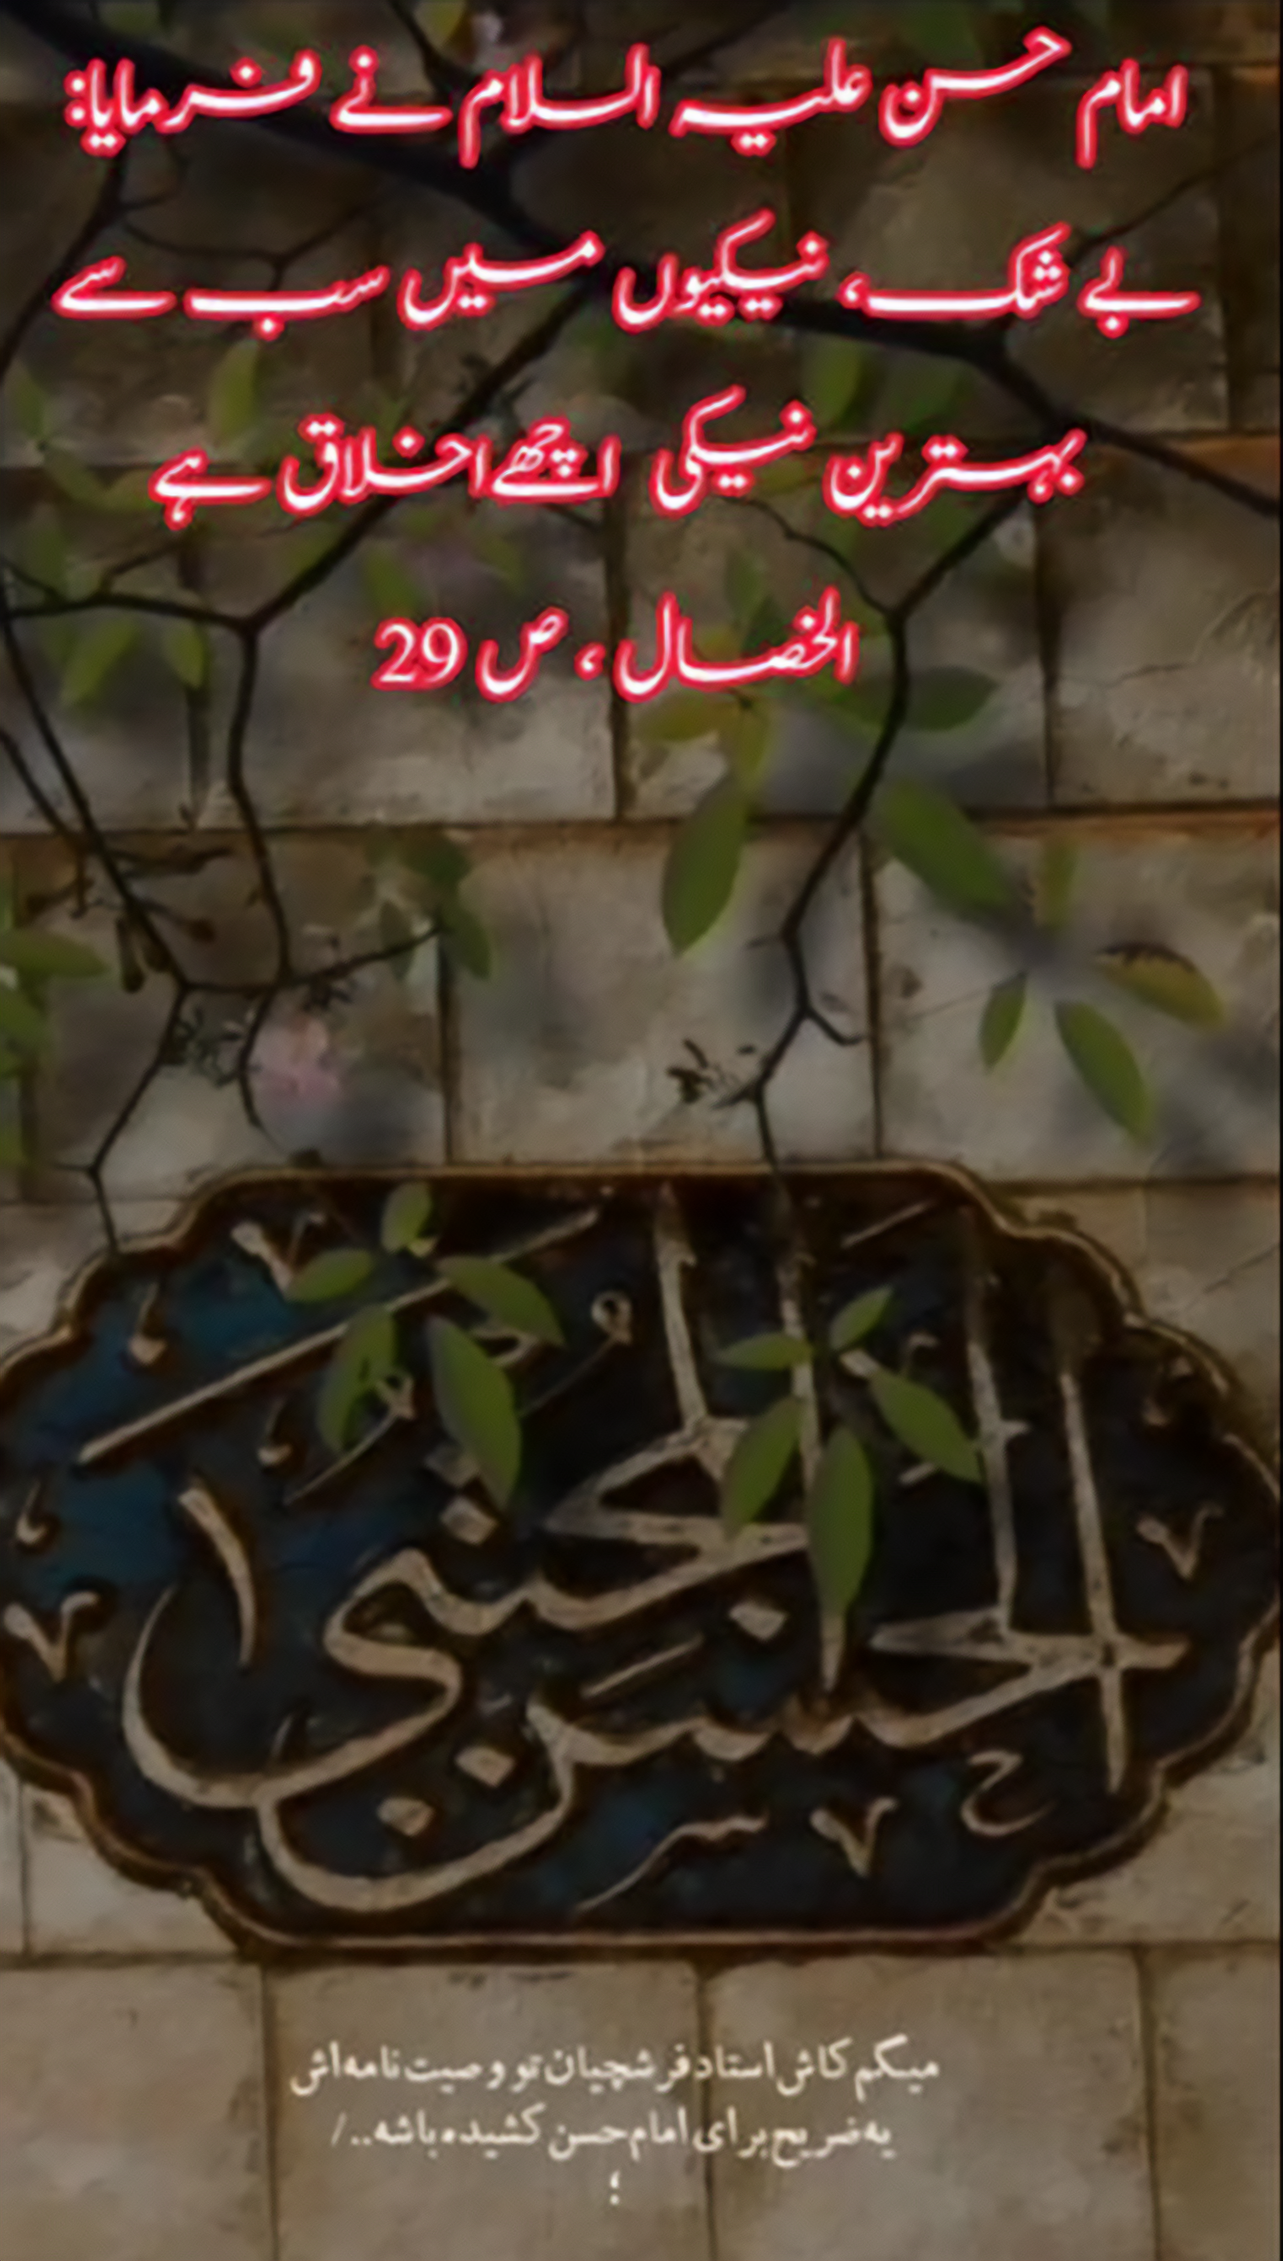 امام حسن علیہ السلام نے فرمایا:
بے شک، نیکیوں میں سب سے
بہترین نیکی اچھے اخلاق ہے
الخصال، ص 29
الحسن المجتبی
میگم کاش استاد فرشچیان تو وصیت نامه‌اش
یه ضریح برای امام حسن کشیده باشه../
؛